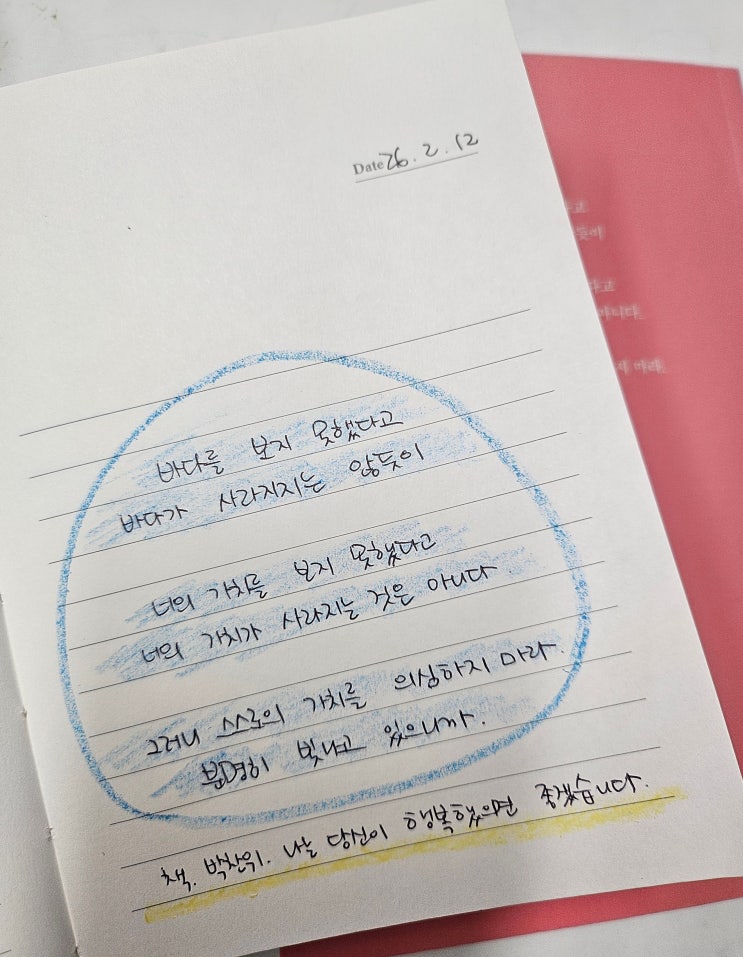 Date 26. 2. 12
바다를 보지 못했다고
바다가 사라지지는 않듯이
너의 가치를 보지 못했다고
너의 가치가 사라지는 것은 아니다.
그러니 스스로의 가치를 의심하지 마라.
분명히 빛나고 있으니까.
책. 박찬위. 나는 당신이 행복했으면 좋겠습니다.
다고
듯이
다고
아니다.
지 마라.